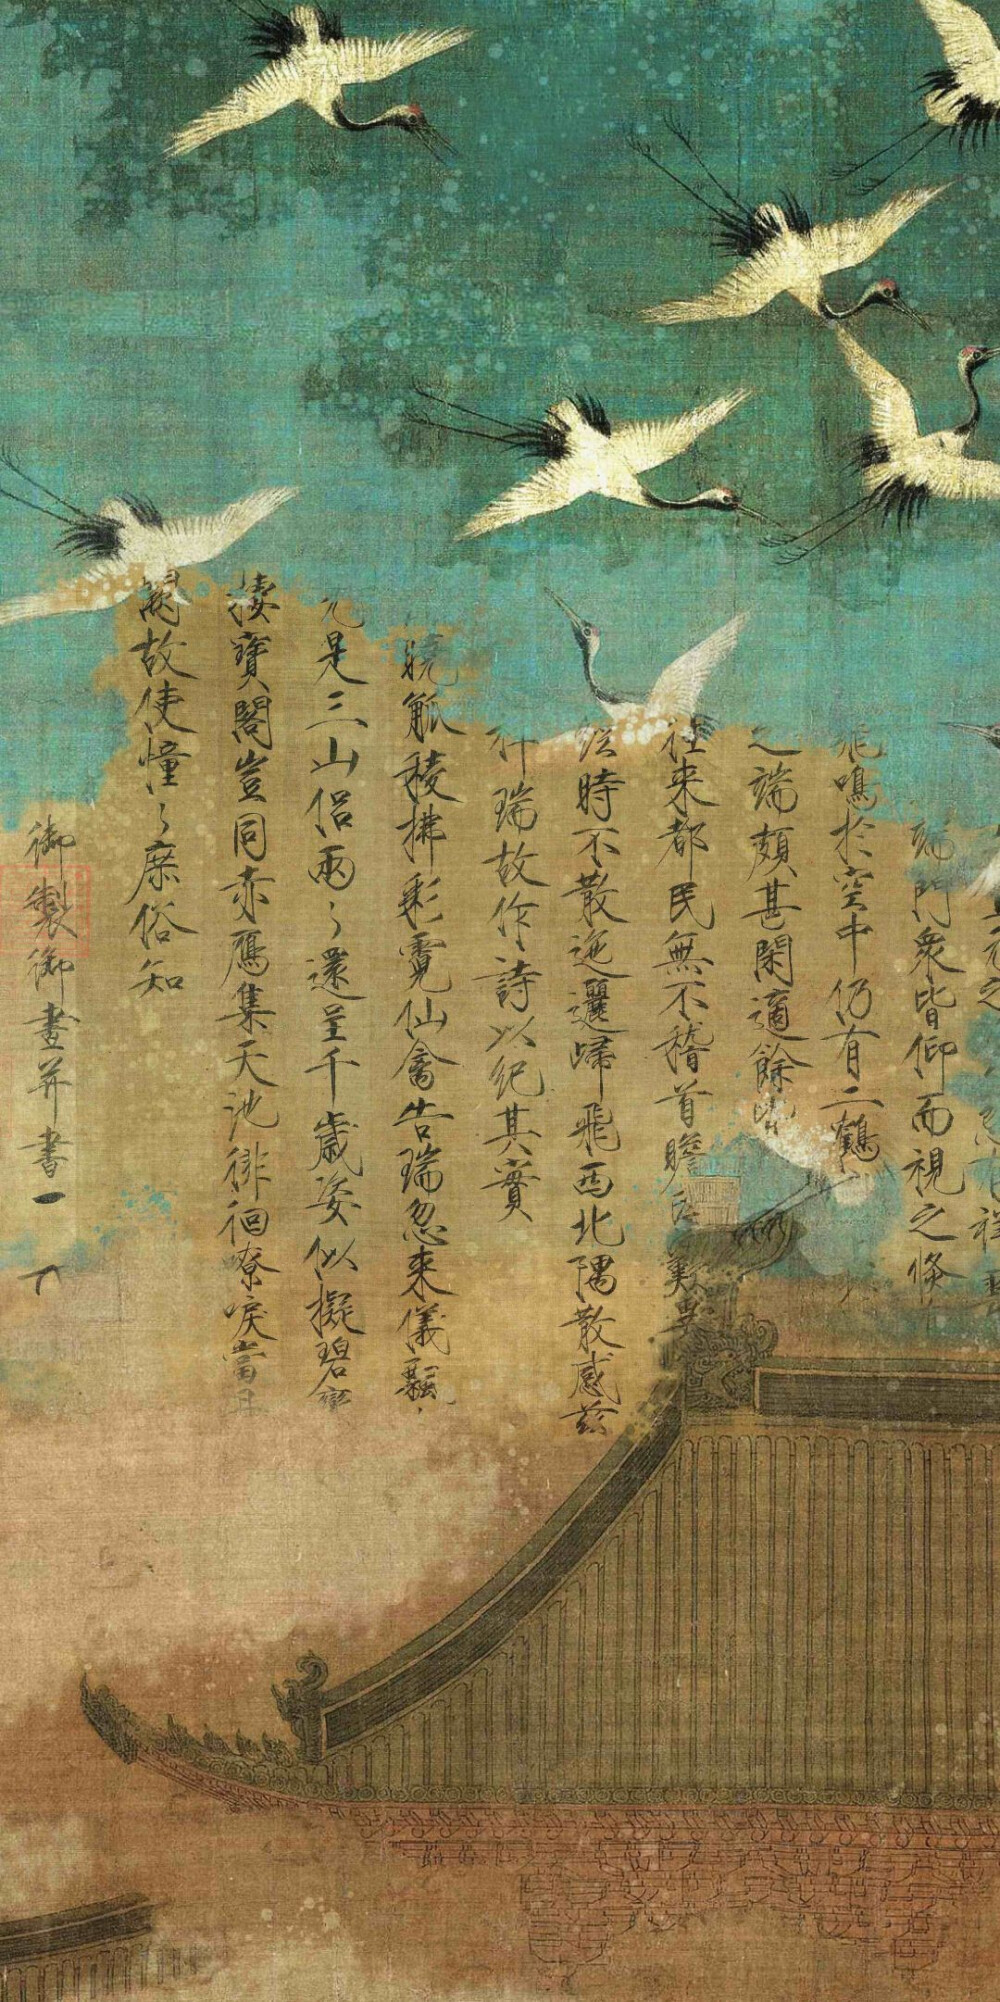 元之
祥
端門衆皆仰而視之倏
飛鳴於空中仍有二鶴
之端頗甚閑適餘
往来都民無不稽首瞻
經時不散迤邐歸飛西北隅散感茲
祥瑞故作詩以紀其實
曉觚稜拂彩霓仙禽告瑞忽来儀飄
元是三山侶兩〻還呈千歲姿似擬碧鸞
棲寶閣豈同赤鴈集天池徘徊嘹唳當丹
闕故使憧〻庶俗知
御製御畫并書一